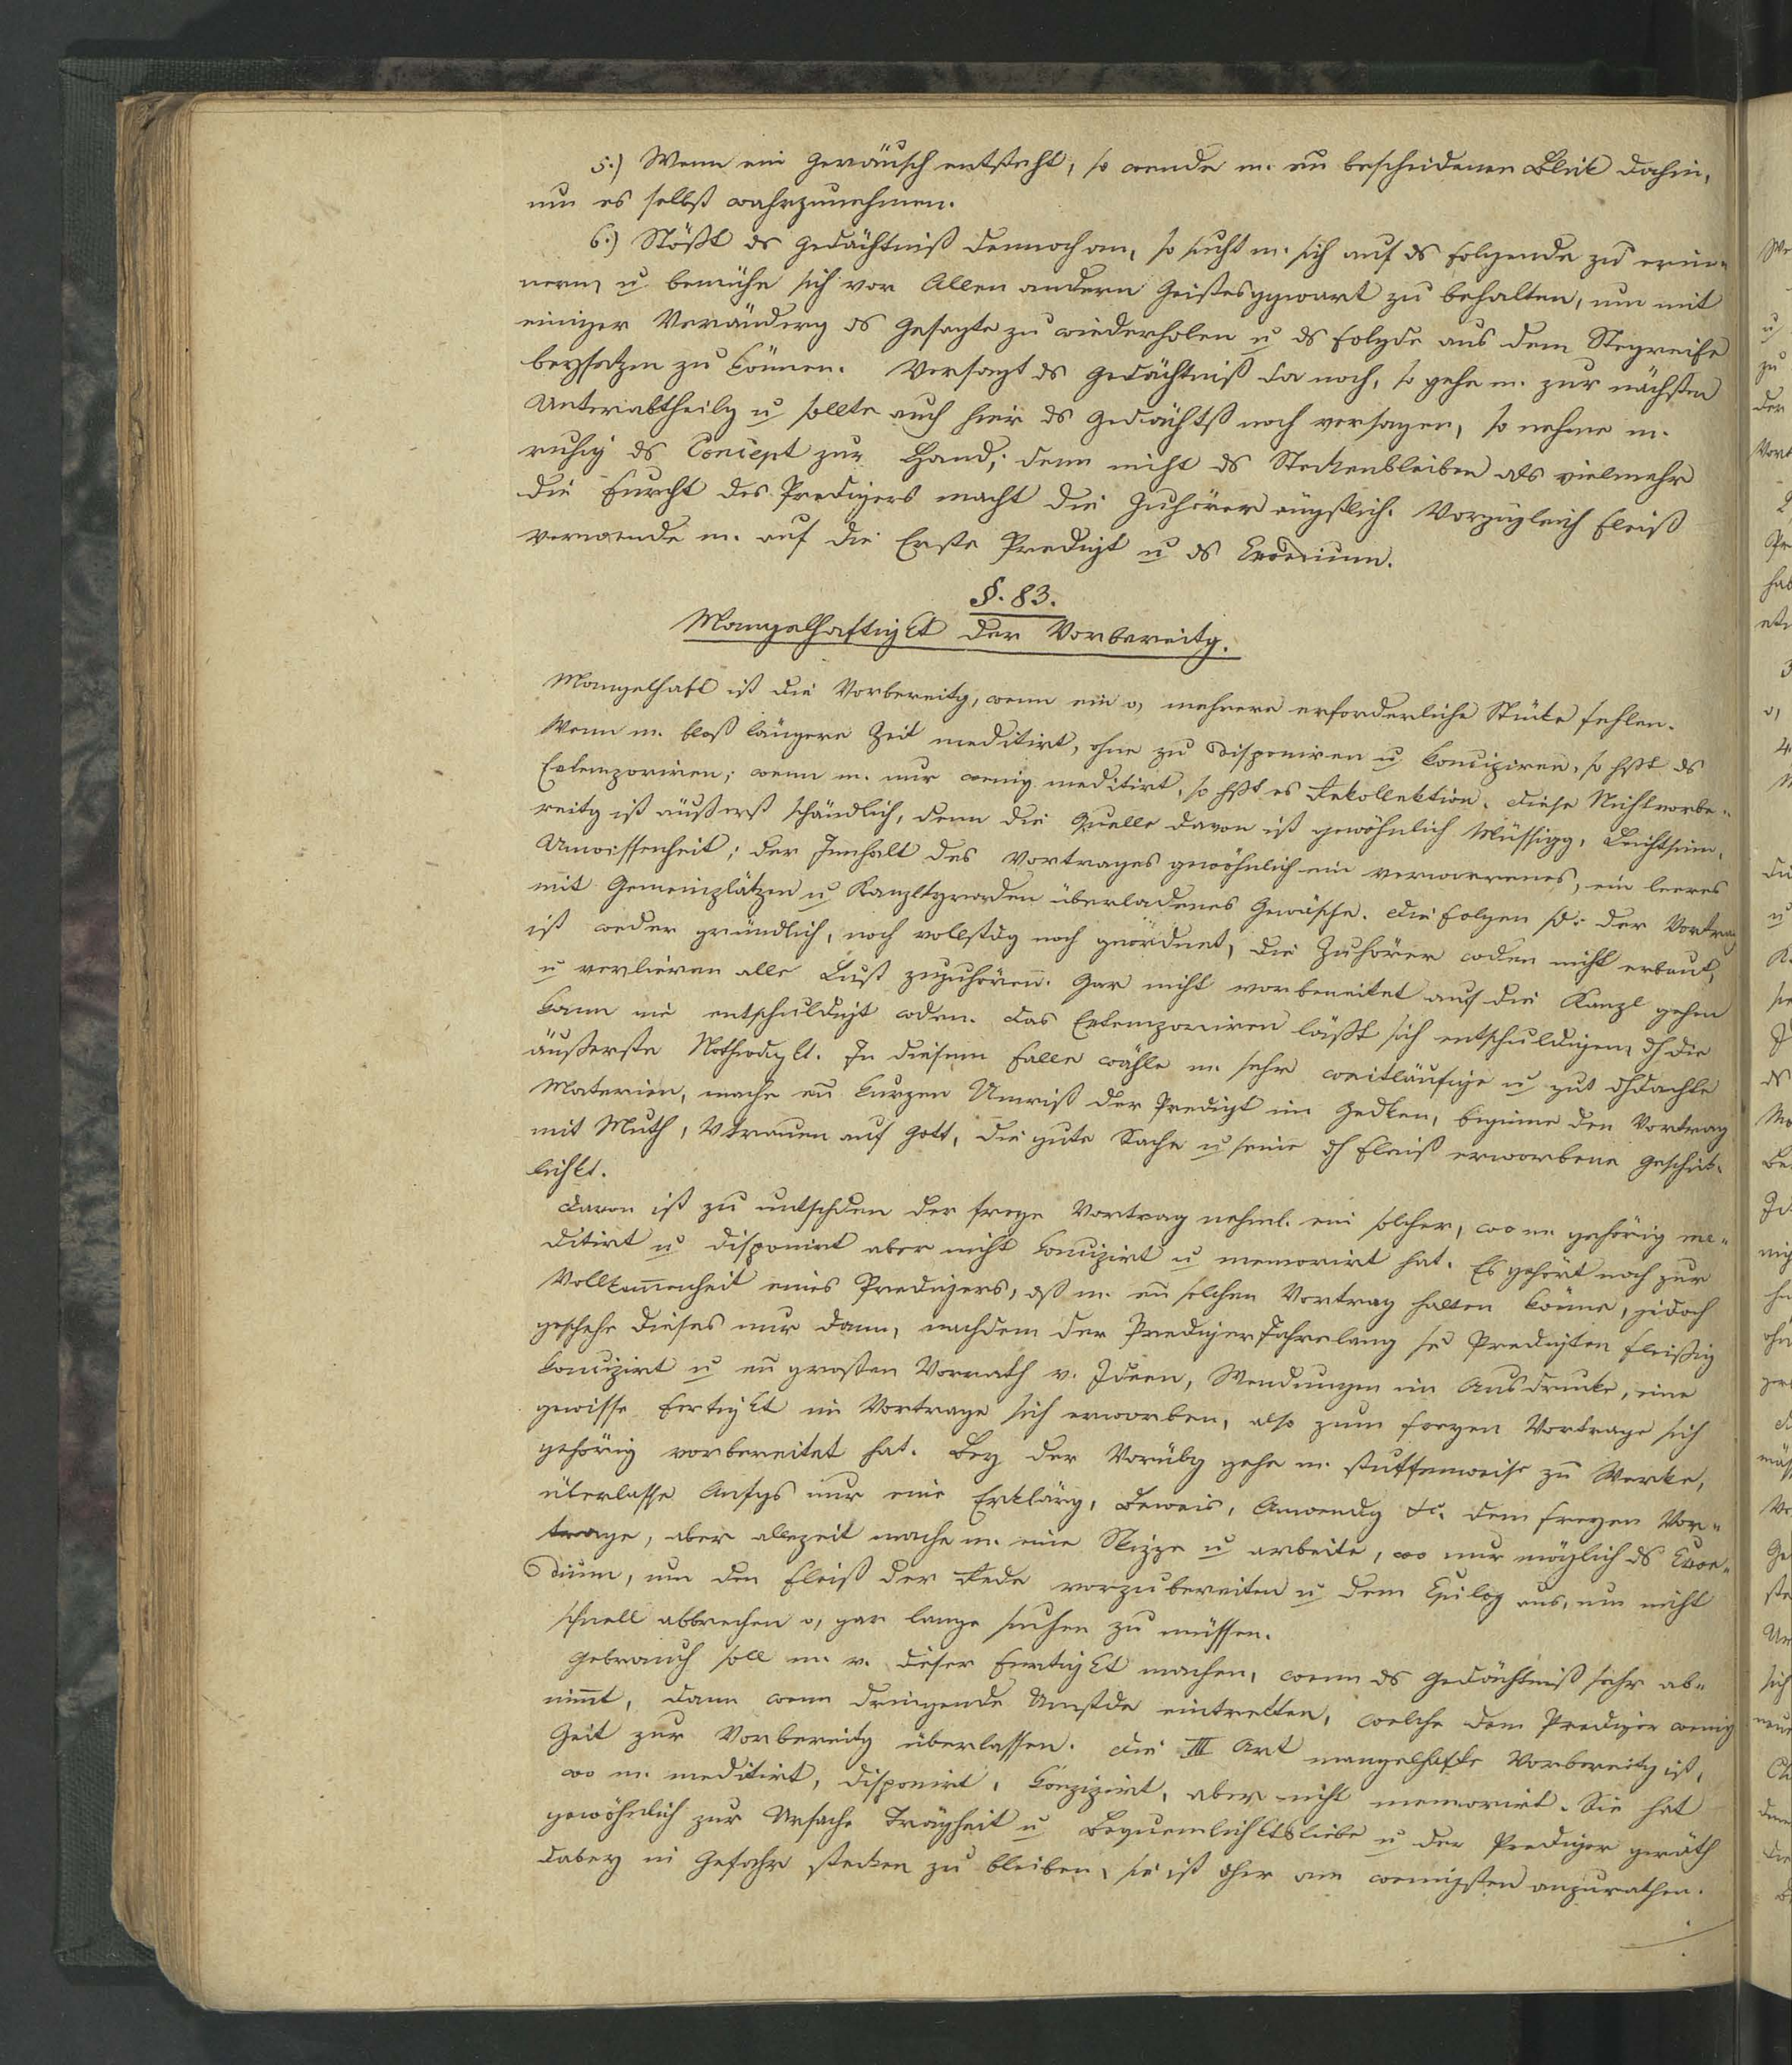 5.) Wenn ein Geräusch entsteht, so wende m. eu bescheidenen Blick dahin,
um es selbst wahrzunehmen.
6.) Stößt ds Gedächtniß dennoch an, so sucht m. sich auf ds folgende zu erin-
nern, u bemühe sich vor Allen andern Geistesggwart zu behalten, um mit
einiger Veränderg ds Gesagte zu wiederholen u ds folgde aus dem Stegreife
beysetzen zu können. Versagt ds Gedächtniß da noch, so gehe m. zur nächsten
Unterabtheilg u sollte auch hier ds Gedächtß noch versagen, so nehme m.
ruhig ds Concept zur Hand; denn nicht ds Steckenbleiben als vielmehr
die Furcht des Predigers macht die Zuhörer ängstlich. Vorzüglich Fleiß
verwende m. auf die Erste Predigt u ds Exordium.
§. 83.
Mangelhaftigkt der Vorbereitg.
Mangelhaft ist die Vorbereitg, wenn ein o, mehrere erforderliche Stücke fehlen.
Wenn m. bloß längere Zeit meditirt, ohne zu disponiren u koncipiren, so hßt ds
Extemporiren; wenn m. nur wenig meditirt, so hßt es Rekollektion. Diese Nichtvorbe-
reitg ist äußerst schändlich, denn die Quelle davon ist gewöhnlich Müssigg, Leichtsinn,
Unwissenheit; der Innhalt des Vortrages gewöhnlich ein verworrenes, ein leeres
mit Gemeinplätzen u Kanzltgraden überladenes Gewäsche. Die Folgen sd: der Vortrag
ist weder gründlich, noch vollstdg noch geordnet, die Zuhörer wden nicht erbaut,
u verlieren alle Lust zuzuhören. Gar nicht vorbereitet auf die Kanzl gehen
kann nie entschuldigt wdrn. Das Extemporiren läßt sich entschuldigen, dh die
äußerste Nothwdgkt. In diesem Falle wähle m. sehr weitläufige u gut dhdachte
Materien, mache eu kurzen Umriß der Predigt im Gedken, beginne den Vortrag
mit Muth, Vtrauen auf Gott, die gute Sache u seine dh Fleiß erworbene Geschick-
lichkt.
Davon ist zu untschden der freye Vortrag nehml. ein solcher, wo m. gehörig me-
ditirt u disponirt aber nicht koncipirt u memorirt hat. Es gehört noch zur
Vollkom̄enheit eines Predigers, dß m. eu solchen Vortrag halten könne, jedoch
geschehe dieses nur dann, nachdem der Prediger Jahrelang se Predigten fleißig
koncipirt u eu großen Vorrath v. Ideen, Wendungen im Ausdrucke, eine
gewisse Fertigkt im Vortrage sich erworben, also zum freyen Vortrage sich
gehörig vorbereitet hat. Bey der Vorübg gehe m. stuffenweise zu Werke,
überlasse Anfgs nur eine Erklärg, Beweis, Anwendg &c. dem freyen Vor-
trage, aber allezeit mache m. eine Skizze u arbeite, wo nur möglich ds Exor-
dium, um den Fleiß der Rede vorzubereiten u dem Epilog aus, um nicht
schnell abbrechen o, gar lange suchen zu müssen.
Gebrauch soll m. v. dieser Fertigkt machen, wenn ds Gedächtniß sehr ab-
nim̄t, dann wenn dringende Umstde eintretten, welche dem Prediger wenig
Zeit zur Vorbereitg überlassen. Die III Art mangelhafte Vorbereitg ist,
wo m. meditirt, disponirt, konzipirt, aber nicht memorirt. Sie hat
gewöhnlich zur Ursache Trägheit u Bequemlichktsliebe u der Prediger geräth
dabey in Gefahr stecken zu bleiben, sie ist dher am wenigsten anzurathen.